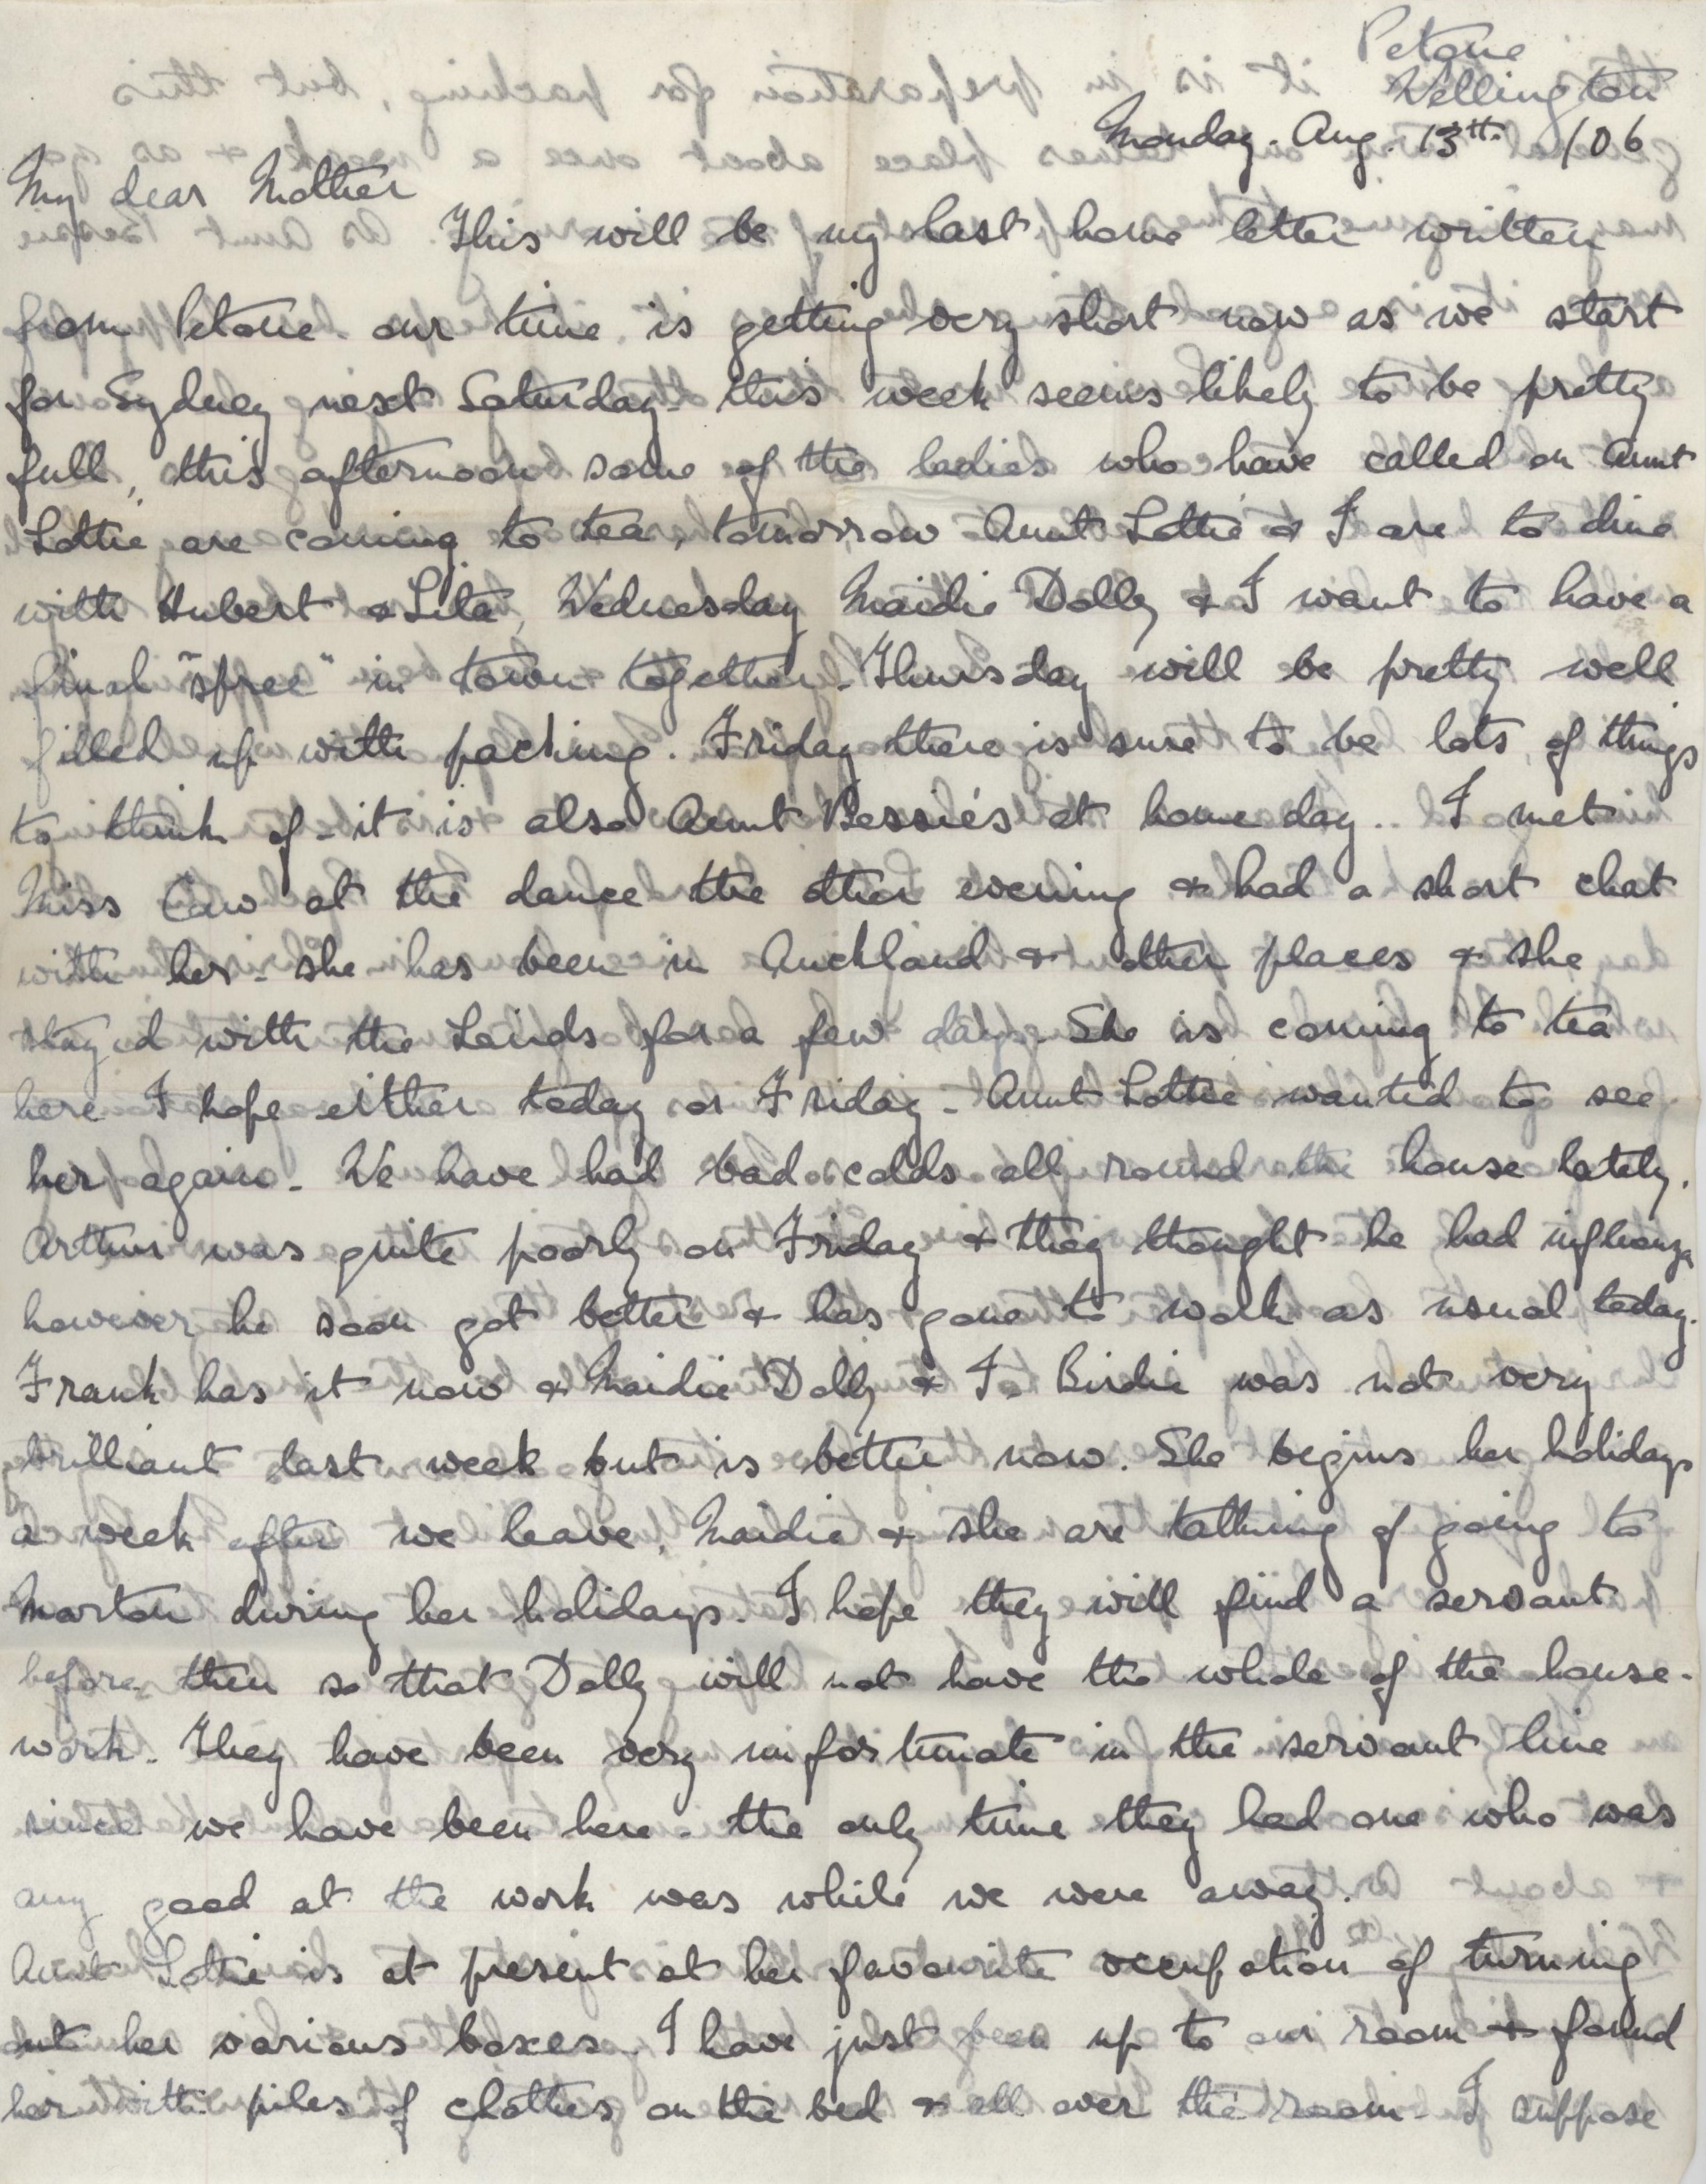 Petone
Wellington
Monday. Aug. 13th /06
My dear Mother
This will be my last home letter written
from Petone - our time is getting very short now as we start
for Sydney next Saturday - this week seems likely to be pretty
full, this afternoon some of the ladies who have called on Aunt
Lottie are coming to tea, tomorrow Aunt Lottie & I are to dine
with Hubert & Lita, Wednesday Maidie Dolly & I want to have a
final "spree" in town together - Thursday will be pretty well
filled up with packing. Friday there is sure to be lots of things
to think of - it is also Aunt Bessie's at home day. I met
Miss Caw at the dance the other evening & had a short chat
with her - she has been in Auckland & other places & she
stayed with the Lairds for a few days. She is coming to tea
here I hope either today or Friday - Aunt Lottie wanted to see
her again - We have had bad colds all round the house lately.
Arthur was quite poorly on Friday & they thought he had influenza
however he soon got better & has gone to work as usual today.
Frank has it now & Maidie Dolly & I. Birdie was not very
brilliant last week but is better now. She begins her holidays
a week after we leave, Maidie & she are talking of going to
Marton during her holidays. I hope they will find a servant
before then so that Dolly will not have the whole of the house-
work. They have been very unfortunate in the servant line
since we have been here - the only time they had one who was
any good at the work was while we were away.
Aunt Lottie is at present at her favourite occupation of turning
out her various boxes. I have just been up to our room & found
her with piles of clothes on the bed & all over the room - I suppose